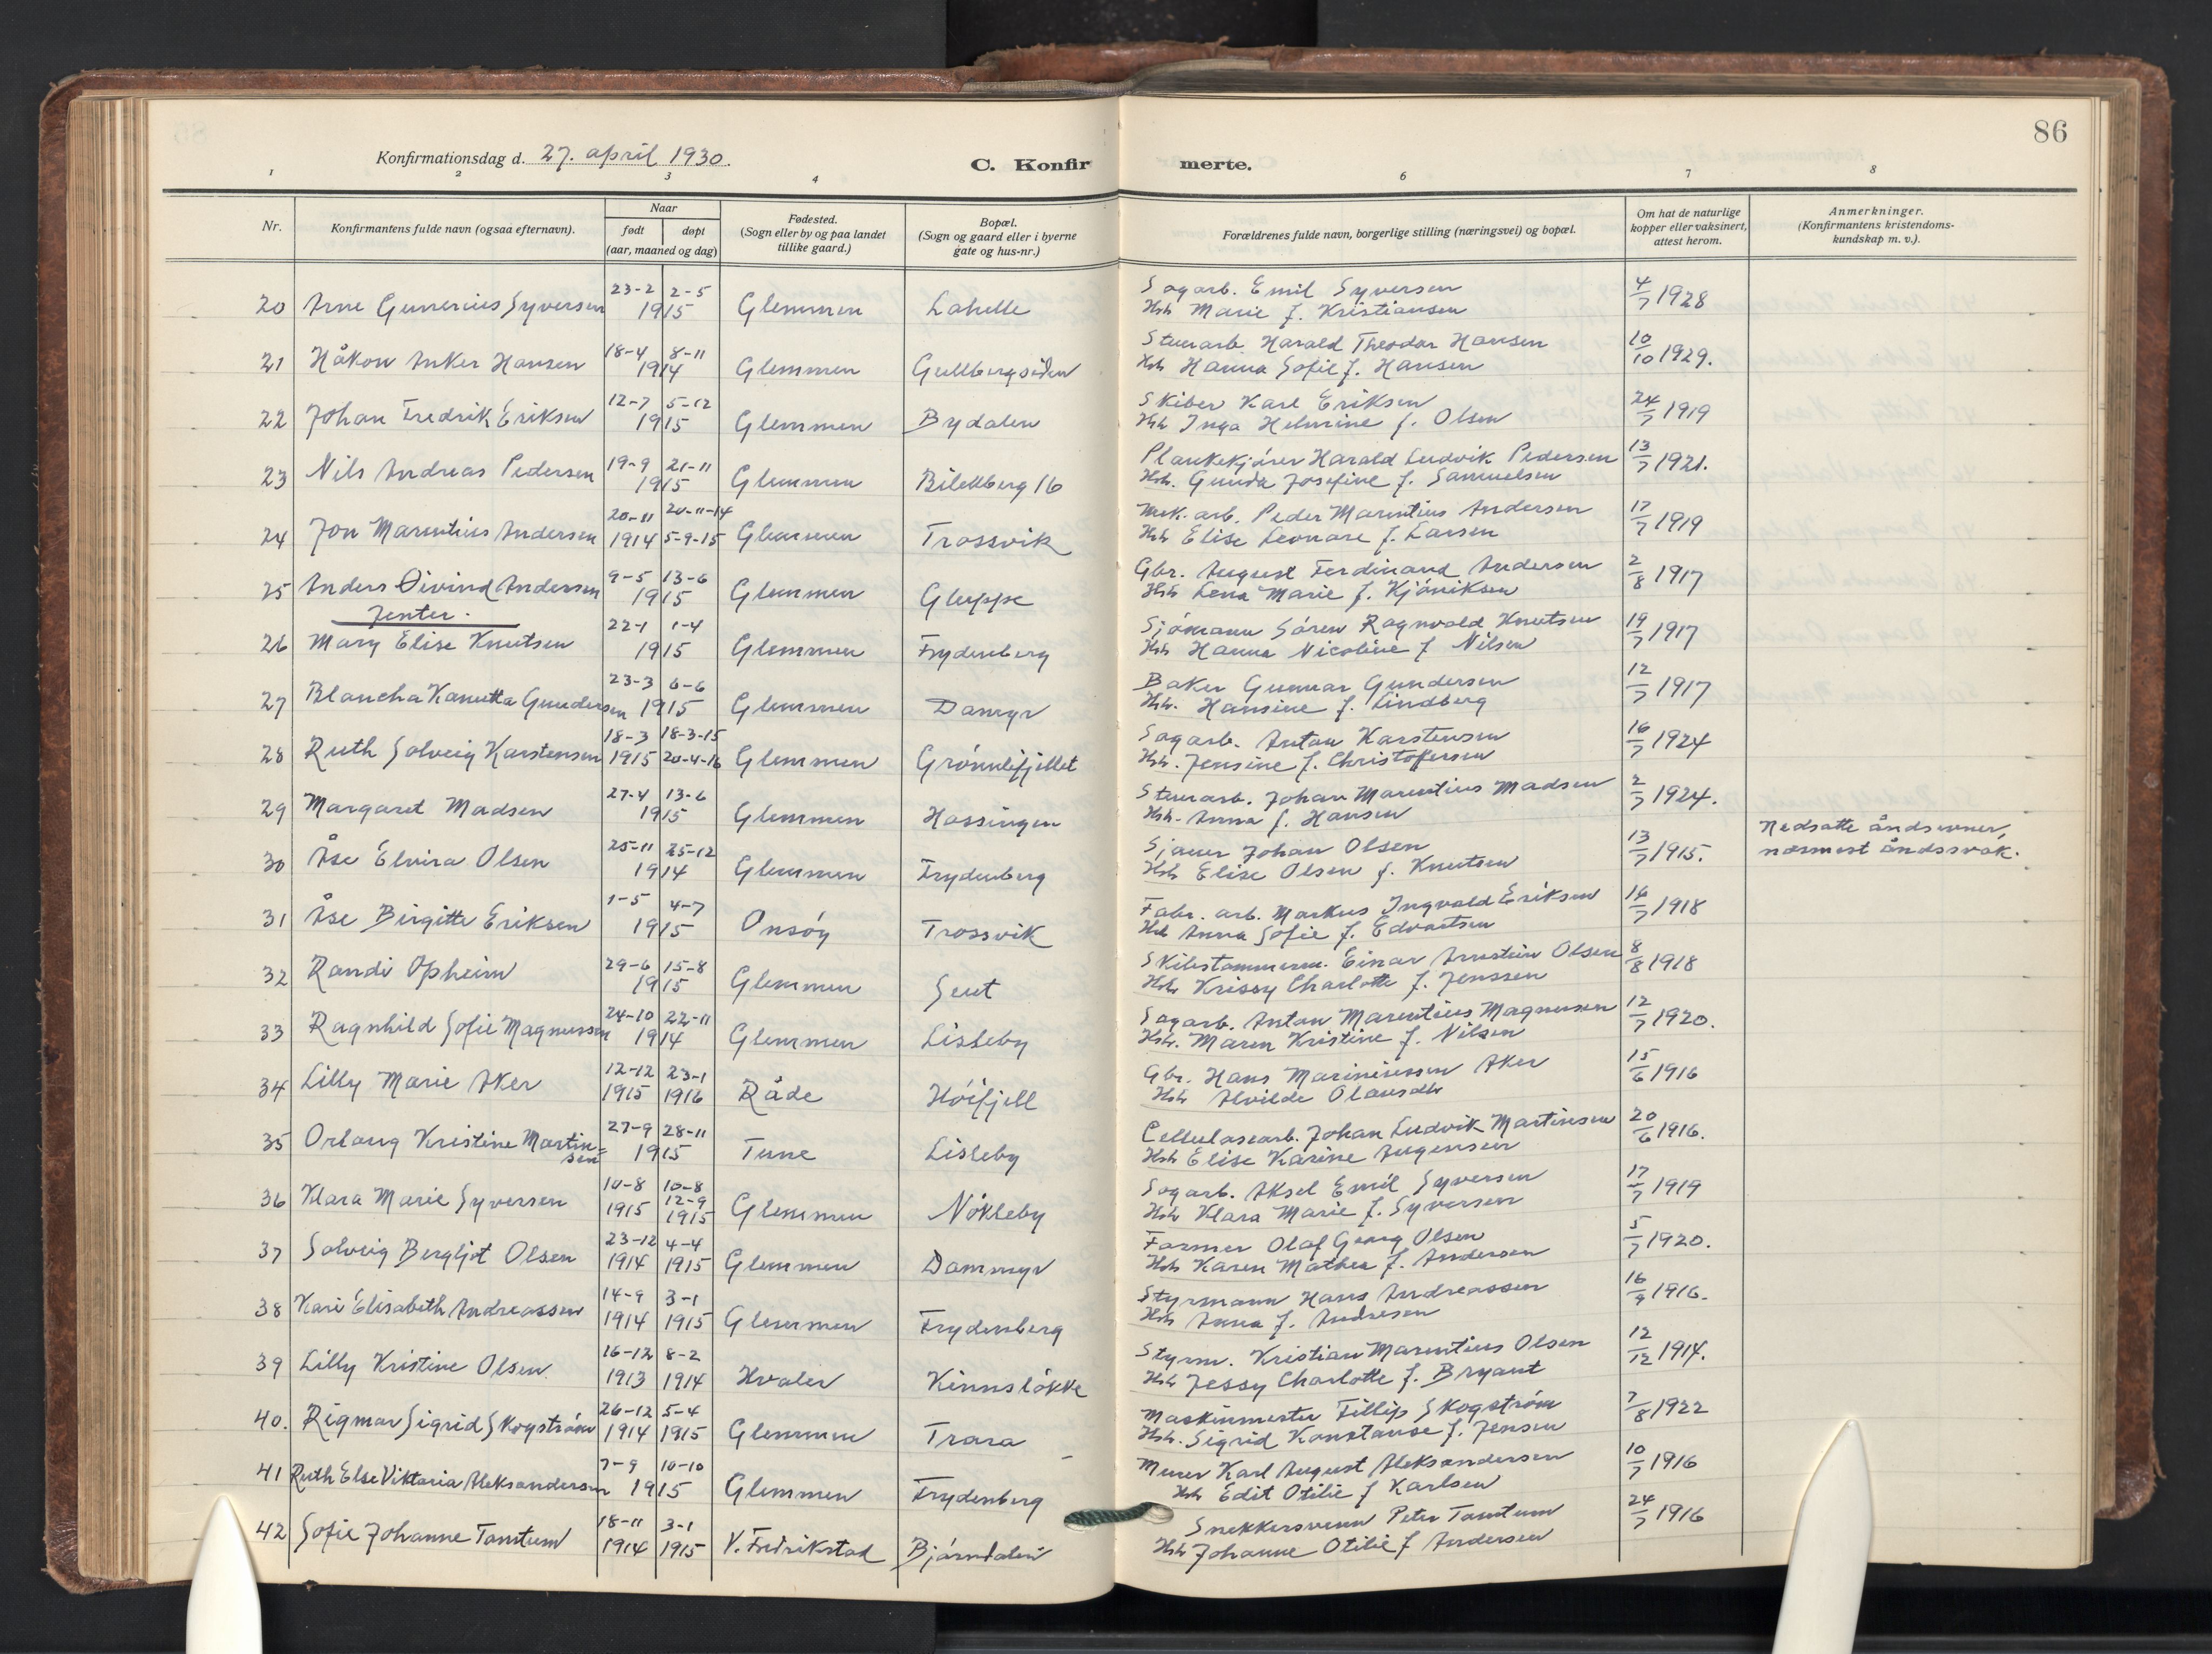 86
Konfirmationsdag d. 27. april 1930.
C. Konfirmerte.
1 2 3 4 6 7 8
Nr.
Konfirmantens fulde navn (ogsaa efternavn).
Naar
født døpt
(aar, maaned og dag)
Fødested.
(Sogn eller by og paa landet
tillike gaard.)
Bopæl.
(Sogn og gaard eller i byerne
gate og hus-nr.)
Forældrenes fulde navn, borgerlige stilling (næringsvei) og bopæl.
Om hat de naturlige
kopper eller vaksinert,
attest herom.
Anmerkninger.
(Konfirmantens kristendoms-
kundskap m. v.).
20 Arne Gunerius Syversen 23-2 2-5 1915 Glemmen Lahelle
Sagarb. Emil Syversen 4/7 1928
Hstr Marie f. Kristiansen
21 Håkon Anker Hansen 18-4 8-11 1914 Glemmen Gullbergsiden
Stuerarb. Harald Theodor Hansen 10/10 1929.
Hstr Hanna Sofie f. Hansen
22 Johan Fredrik Eriksen 12-7 5-12 1915 Glemmen Bydalen
Skiber Karl Eriksen 24/7 1919
Hstr Inga Helmine f. Olsen
23 Nils Andreas Pedersen 19-9 21-11 1915 Glemmen Bilettberg 16
Plankekjörer Harald Ludvik Pedersen 13/7 1921.
Hstr. Gunda Josefine f. Samuelsen
24 Jon Marentius Andersen 20-11 1914 20-11-14 5-9-15 Glemmen Trossvik
Mek. arb. Peder Marentius Andersen 17/7 1919
Hstr Elise Leonare f. Larsen
25 Anders Öivind Andersen 9-5 13-6 1915 Glemmen Gluppe
Gbr. August Ferdinand Andersen 2/8 1917
Hstr Lena Marie f. Kjöniksen
Jenter.
26 Mary Elise Knutsen 22-1 1-4 1915 Glemmen Frydenberg
Sjömann Sören Ragnvald Knutsen 19/7 1917
Hstr Hanna Nicoline f Nilsen
27 Blancha Kanutta Gundersen 23-3 6-6 1915 Glemmen Damyr
Baker Gunnar Gundersen 12/7 1917
Hstr. Hansine f. Lindberg
28 Ruth Solveig Karstensen 18-3 1915 18-3-15 20-4-16 Glemmen Grönnlifjellet
Sagarb. Anton Karstensen 16/7 1924
Hstr. Jensine f. Christoffersen
29 Margaret Madsen 27-4 13-6 1915 Glemmen Hassingen
Stuerarb. Johan Marentius Madsen 2/7 1924.
Hstr. Anna f. Hansen
30 Åse Elvira Olsen 25-11 25-12 1914 Glemmen Frydenberg
Sjauer Johan Olsen 13/7 1915.
Hstr Elise Olsen f. Knutsen
Nedsatte åndsevner,
nærmest åndssvak.
31 Åse Birgitte Eriksen 1-5 4-7 1915 Onsöy Trossvik
Fabr. arb. Markus Ingvald Eriksen 16/7 1918
Hstr Anna Sofie f. Edvartsen
32 Randi Opheim 29-6 15-8 1915 Glemmen Seut
Skibstømmerm. Einar Arnstein Olsen 8/8 1918
Hstr Krissy Charlotte f. Jenssen
33 Ragnhild Sofie Magnussen 24-10 22-11 1914 Glemmen Lisleby
Sagarb. Anton Marentius Magnusen 12/7 1920.
Hstr. Maren Kristine f. Nilsen
34 Lilly Marie Aker 12-12 1915 23-1 1916 Råde Höifjell
Gbr. Hans Mariniussen Aker 15/6 1916
Hstr Alvilde Olausdtr
35 Orlaug Kristine Martinsen 27-9 28-11 1915 Tune Lisleby
Cellulosearb. Johan Ludvik Martinsen 20/6 1916.
Hstr Elise Karine Jugensen
36 Klara Marie Syversen 10-8 1915 10-8 12-9 1915 Glemmen Nökleby
Sagarb. Aksel Emil Syversen 17/7 1919
Hstr Klara Marie f. Syversen
37 Solveig Bergljot Olsen 23-12 1914 4-4 1915 Glemmen Dammyr
Farmer Olaf Georg Olsen 5/7 1920.
Hstr Karen Mathea f. Andersen
38 Kari Elisabeth Andreassen 14-9 1914 3-1 1915 Glemmen Frydenberg
Styrmann Hans Andreassen 16/9 1916.
Hstr Anna f. Andresen
39 Lilly Kristine Olsen 16-12 1913 8-2 1914 Hvaler Kinnslökke
Styrm. Kristian Marentius Olsen 12/12 1914.
Hstr Jessy Charlotte f. Bryant
40. Rigmor Sigrid Skogström 26-12 1914 5-4 1915 Glemmen Trara
Maskinmester Fillip Skogström 7/8 1922
Hstr. Sigrid Konstanse f. Jensen
41 Ruth Else Viktoria Aleksandersen 7-9 10-10 1915 Glemmen Frydenberg
Murer Karl August Aleksandersen 10/7 1916
Hstr Edit Otilie f Karlsen
42 Sofie Johanne Tamtum 18-11 1914 3-1 1915 V. Fredrikstad Bjørndalen
Snekkersvenn Peter Tamtum 24/7 1916
Hstr Johanne Otilie f Andersen